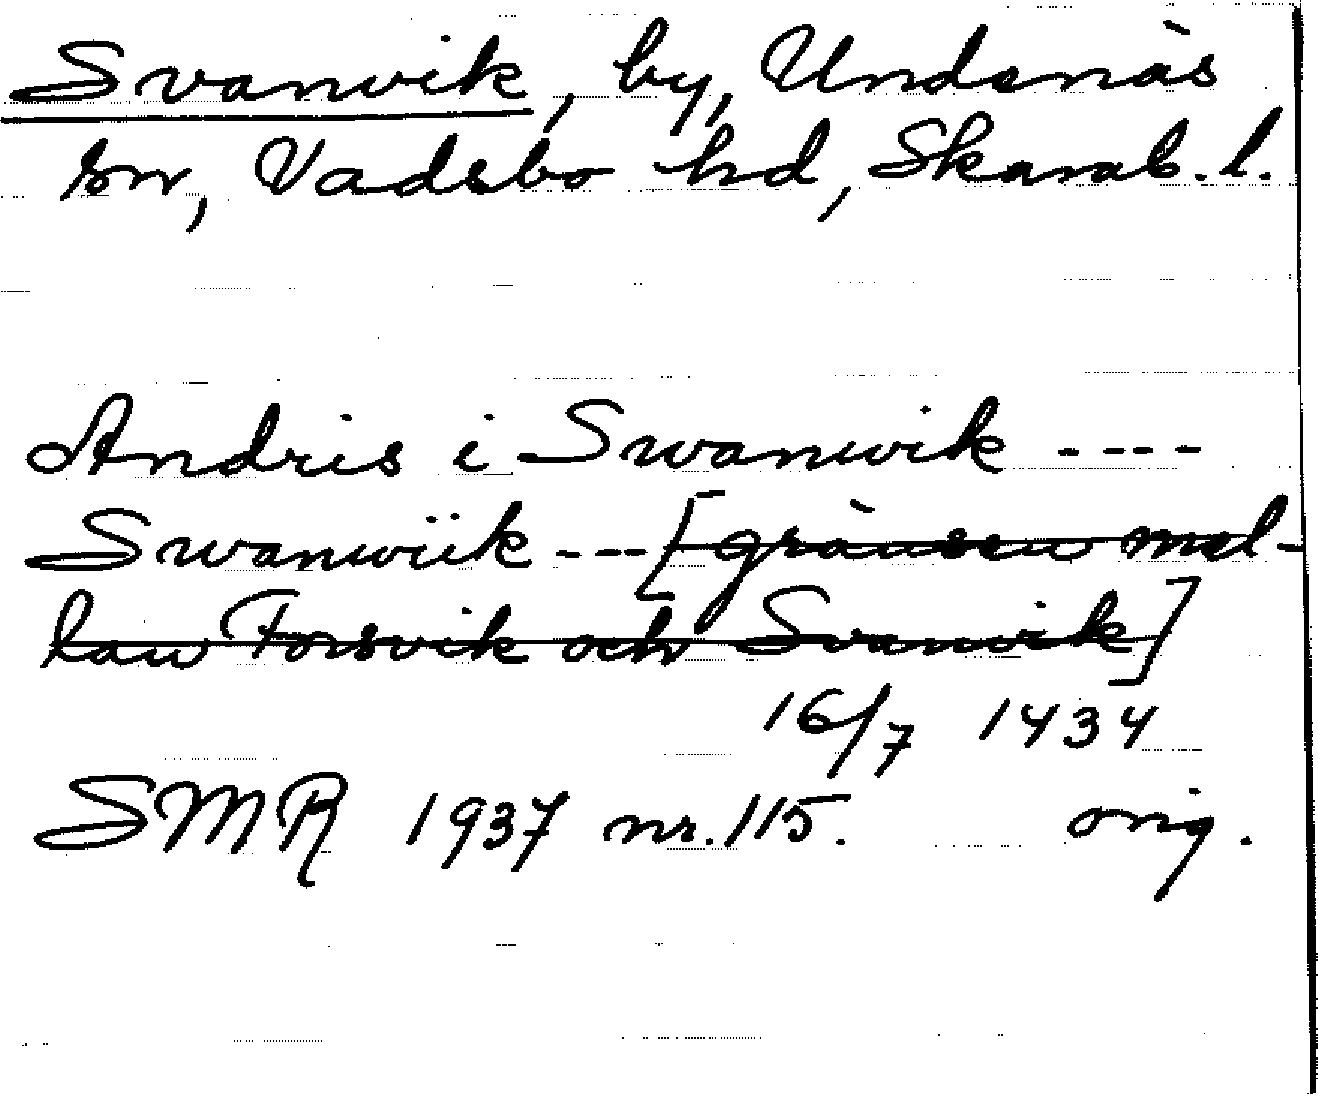 Svanvik, by, Undenäs
sn, Vadsbo hd, Skarab. l.
Andris i Swanwik ----
Swanwiik --- [gränsen mel-
lan Forsvik och Svanvik]
16/7 1434
SMR 1937 nr. 115. orig.